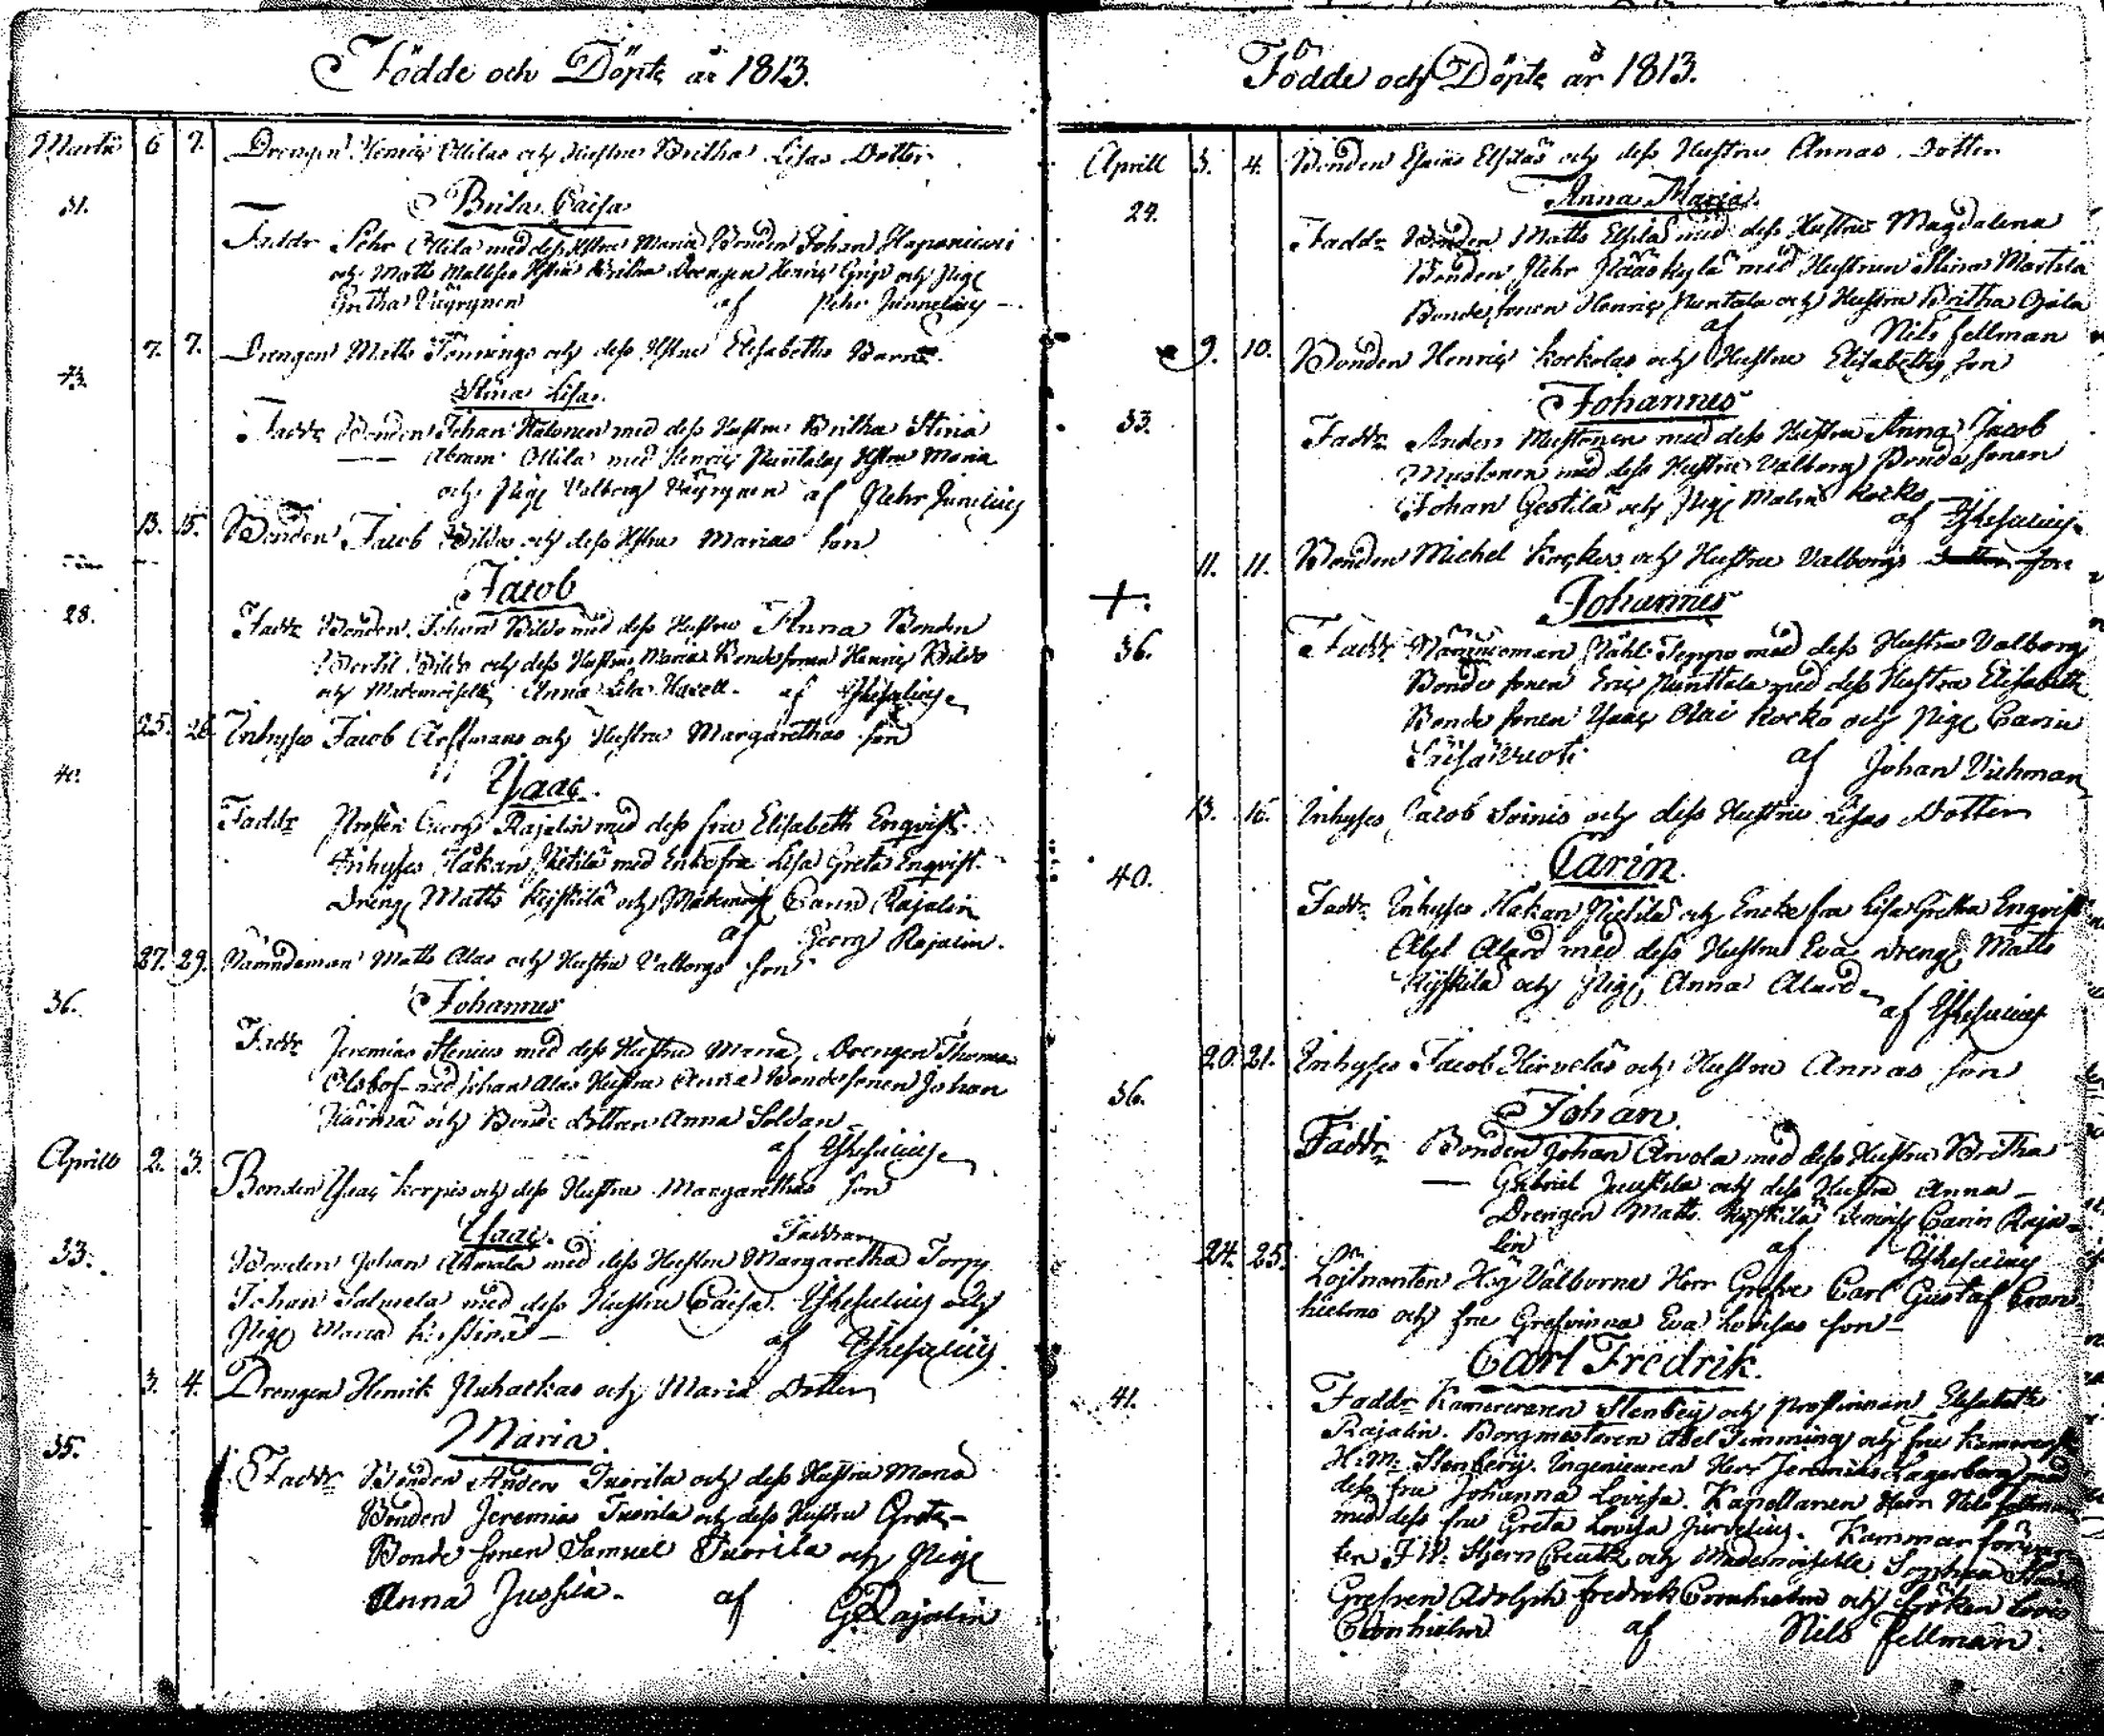 Födde och Döpte år 1813.
Martii 6 7. Drengen Henric Ollilas och Hustru Britha Lisas Dotter
Brita Caisa
31.
Faddr Pehr Ollila med dess Hstru Maria Bonden Johan
och Matts Hstru Britha Drengen Henric och Pige
Gretha Väyrynen af Pehr
7. 7. Drengen Matts och dess Hstru Elisabeths Barn
Stina Lisa.
Faddr Bonden Johan Halonen med dess Hustru Britha Stina
Abram Ollila med Henric Hstru Maria
och Pige Valborg Väyrynen af Pehr
13. 15. Bonden Jacob Bildos och dess Hstru Marias son
Jacob
28.
Faddr Bonden Johan Bildo med dess Hustru Anna Bonden
Bertil Bildo och dess Hustru Maria Bondesonen Henric Bildo
och Mademoiselle Anna Lisa Havell. af
25. 26. Inhyses Jacob och Hustru Margarethas son
Isaac.
40.
Faddr Prosten Georg Rajalin med dess fru Elisabeth Enqvist
Inhyses Håkan Pietilä med Enkefru Lisa Greta Enqvist.
Dreng Matts Kyskilä och Mademois Carin Rajalin
af Georg Rajalin.
27. 29. Nämndeman Matts Alas och Hustru Valborgs son
Johannes
36.
Faddr Jeremias Stenius med dess Hustru Maria, Drengen Thomas
med Johan Alas Hustru Anna Bondesonen Johan
Härmä och Bonde Dottren Anna Soldan
af
Aprill 2. 3. Bonden Isac Korpis och dess Hustru Margarethas son
Isaac. Faddrar
33.
Bonden Johan Almala med dess Hustru Margaretha Torp
Johan Salmela med dess Hustru Caisa. och
Pige Maria af
3. 4. Drengen Henrik Puhackas och Maria Dotter
Maria.
35.
Faddr Bonden Anders Tuorila och dess Hustru Maria
Bonden Jeremias Tuorila och dess Hustru Greta
Bonde sonen Samuel Tuorila och Pige
Anna Jussila. af G Rajalin
Födde och Döpte år 1813.
Aprill 3. 4. Bonden Esaias Elsiläs och dess Hustrus Annas Dotter
Anna Maria.
24.
Faddr Bonden Matts Elsilä med dess Hustru Magdalena
Bonden Pehr Pääskylä med Hustrun Stina Martila
Bondesonen Henric Puntala och Hustru Britha Ojala
af Nils Fellman
9. 10. Bonden Henric Kockolas och Hustru Elisabeths son
Johannes
33.
Faddr Anders Mustonen med dess Hustru Anna Jacob
Mustonen med dess Hustru Valborg Bonde sonen
Johan Gestilä och Pige Malin Kocko
af
11. 11. Bonden Michel Kockos och Hustru Valborgs son
Johannes
+.
36.
Faddr Nämndeman Ståhl Seppo med dess Hustru Valborg
Bonde sonen Eric Punttala med dess Hustru Elisabeth
Bonde sonen Isaac Olai Kocko och Pige Carin
af Johan Vichman
13. 16. Inhyses Jacob Soinis och dess Hustru Lisas Dotter
Carin.
40.
Faddr Inhyses Håkan Pietilä och Enke fru Lisa Gretha Enqvist
Abel Alard med dess Hustru Eva Dreng Matts
Kyskilä och Pige Anna Alard
af
20. 21. Inhyses Jacob Hirveläs och Hustru Annas son
Johan.
36.
Faddr Bonden Johan Arvola med dess Hustru Britha
Gabriel Juustila och dess Hustru Anna
Drengen Matts Kyskilä Carin Raja-
lin af
24. 25. Löjtnanten Hög Välborne Herr Grefve Carl Gustaf Cron-
hielms och fru Grefvinna Eva Lovisas son
Carl Fredrik.
41.
Faddr Kamereraren Stenberg och Prostinnan Elisabeth
Rajalin. Borgmästaren Abel Timming och fru
H: M: Stenberg. Ingenieuren Herr Jeremias Lagerborg med
dess fru Johanna Lovisa. Kapellanen Herr Nils Fellman
med dess fru Greta Lovisa Kammar
och Mademoiselle Sophia
Grefven Adolph Fredrik Cronhielm och fröken Lovis
Cronhielm af Nils Fellman.